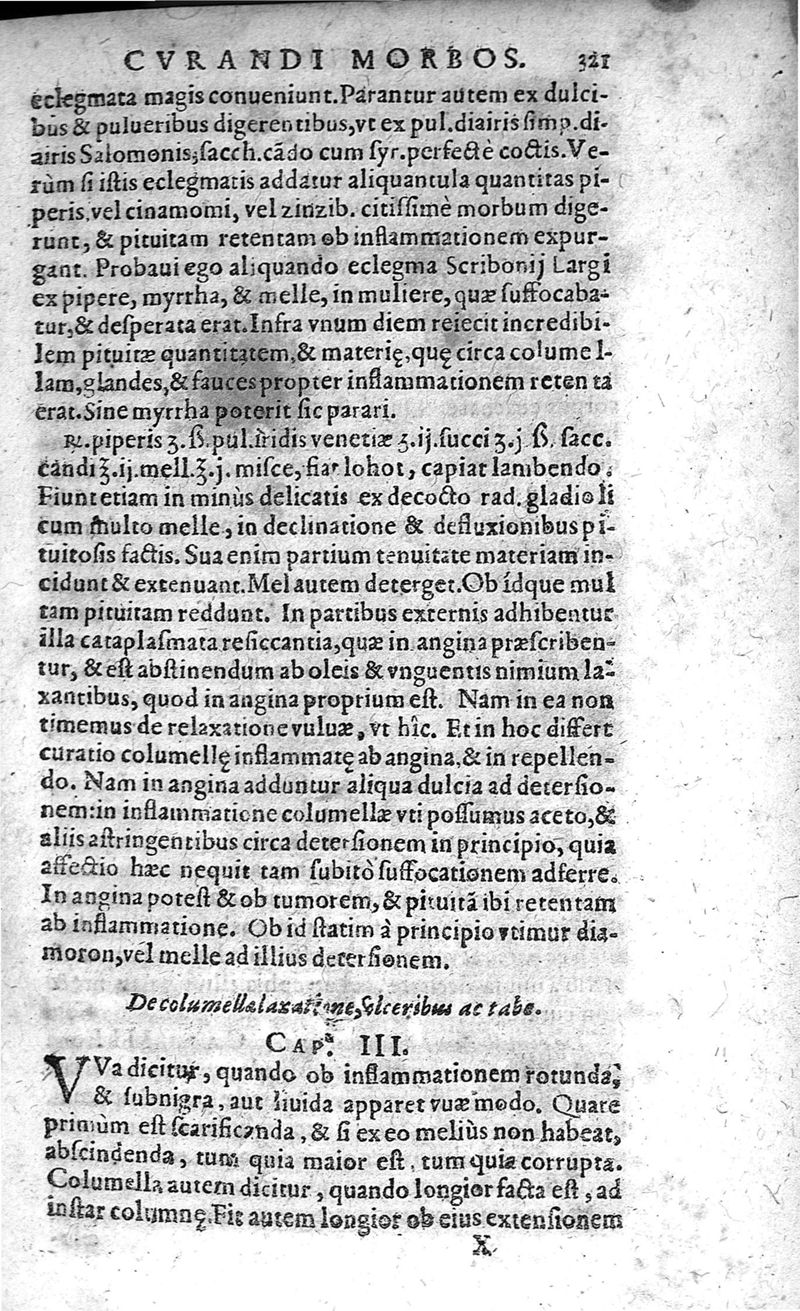 CVRANDI MORBOS. 321
eclegmata magis conueniunt. Parantur autem ex dulci-
bus & pulueribus digerentibus, vt ex pul. diairis ſimp. di-
airis Salomonis; ſacch. cãdo cum ſyr. perfectè coctis. Ve-
rùm ſi iſtis eclegmatis addatur aliquantula quantitas pi-
peris, vel cinamomi, vel zinzib. citiſſimè morbum dige-
runt, & pituitam retentam ob inflammationem expur-
gant. Probaui ego aliquando eclegma Scribonij Largi
ex pipere, myrrha, & melle, in muliere, quæ ſuffocaba-
tur, & deſperata erat. Infra vnum diem reiecit incredibi-
lem pituitæ quantitatem, & materię, quę circa columel-
lam, glandes, & fauces propter inflammationem retenta
erat. Sine myrrha poterit ſic parari.
℞. piperis ʒ. ß. pul. iridis venetiæ ʒ. ij. ſucci ʒ. j. ß. ſacc.
candi ℥. ij. mell. ℥. j. miſce, fiat lohot, capiat lambendo.
Fiunt etiam in minùs delicatis ex decocto rad. gladioli
cum multo melle, in declinatione & defluxionibus pi-
tuitoſis factis. Sua enim partium tenuitate materiam in-
cidunt & extenuant. Mel autem deterget. Ob idque mul
tam pituitam reddunt. In partibus externis adhibentur
illa cataplaſmata reſiccantia, quæ in angina præſcriben-
tur, & eſt abſtinendum ab oleis & vnguentis nimium la-
xantibus, quod in angina proprium eſt. Nam in ea non
timemus de relaxatione vuluæ, vt hîc. Et in hoc differt
curatio columellę inflammatę ab angina, & in repellen-
do. Nam in angina adduntur aliqua dulcia ad deterſio-
nem: in inflammatione columellæ vti poſſumus aceto, &
aliis aſtringentibus circa deterſionem in principio, quia
affectio hæc nequit tam ſubitò ſuffocationem adferre.
In angina poteſt & ob tumorem, & pituitã ibi retentam
ab inflammatione. Ob id ſtatim à principio vtimur dia-
moron, vel melle ad illius deterſionem.
De columellæ laxatione, vlceribus ac tabe.
CAP. III.
VVa dicitur, quando ob inflammationem rotunda,
& ſubnigra, aut liuida apparet vuæ modo. Quare
primùm eſt ſcarificanda, & ſi ex eo meliùs non habeat,
abſcindenda, tum quia maior eſt, tum quia corrupta.
Columella autem dicitur, quando longior facta eſt, ad
inſtar columnę. Fit autem longior ob eius extenſionem
X